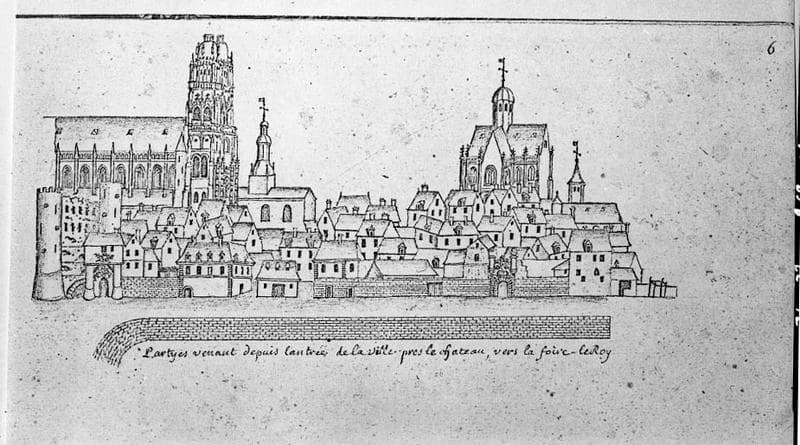 6
Partyes venant depuis lantrée de la ville pres le chateau, vers la foire-le Roy